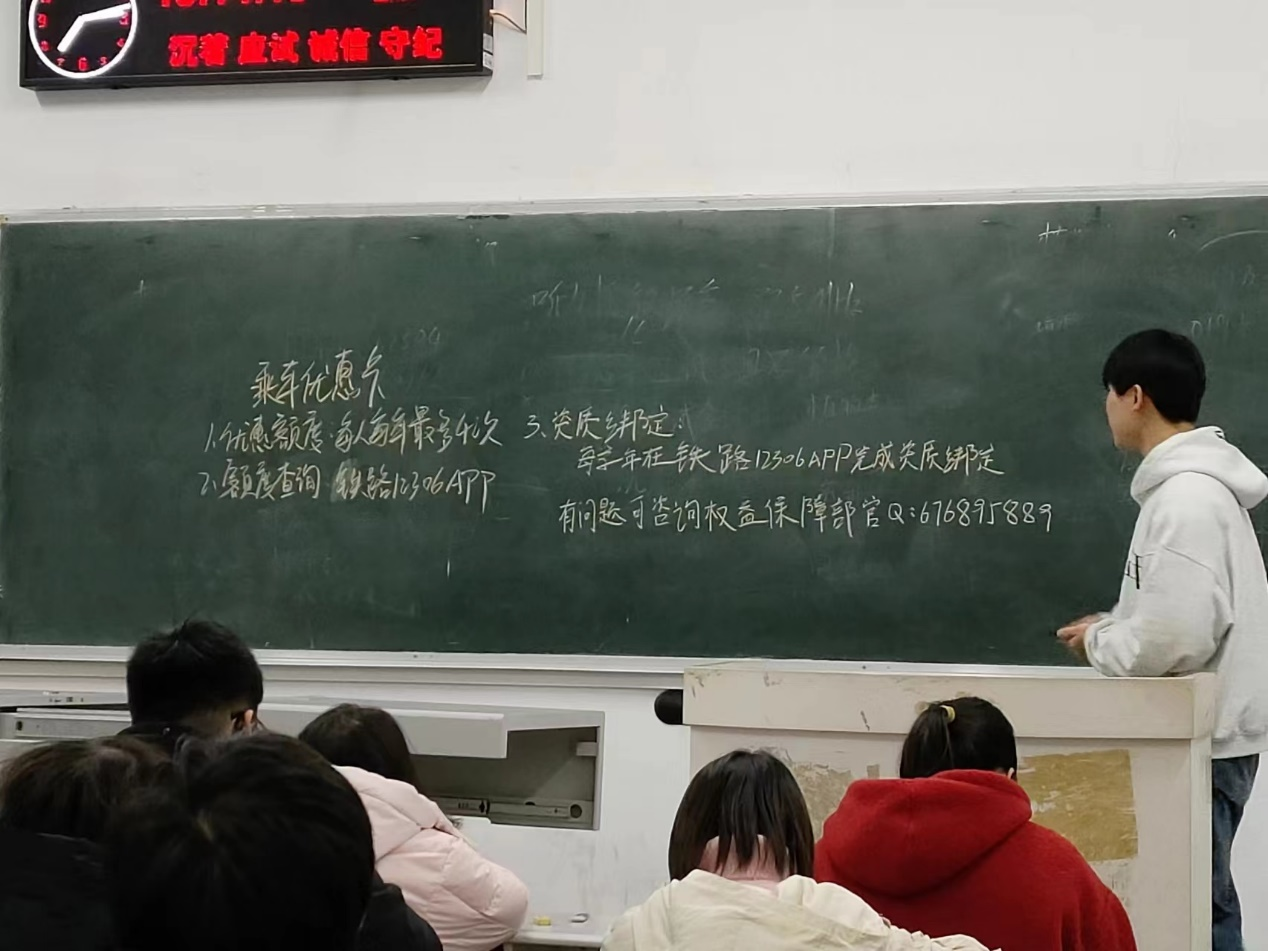 沉着 应试 诚信 守纪
乘车优惠卡
1.优惠额度:每人每年最多4次
2.额度查询 铁路12306APP
3.资质绑定:
每学年在铁路12306APP完成资质绑定
有问题可咨询权益保障部官Q:676895889